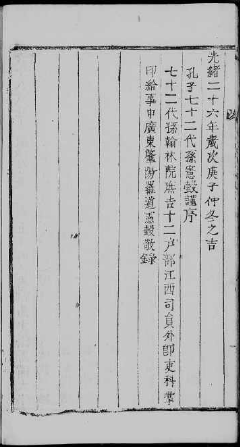 光緒二十六年歲次庚子仲冬之吉
孔子七十二代孫憲㲄謹序
七十二代孫翰林院庶吉士戶部江西司員外郎吏科掌
印給事中廣東肇陽羅道憲㲄敬錄